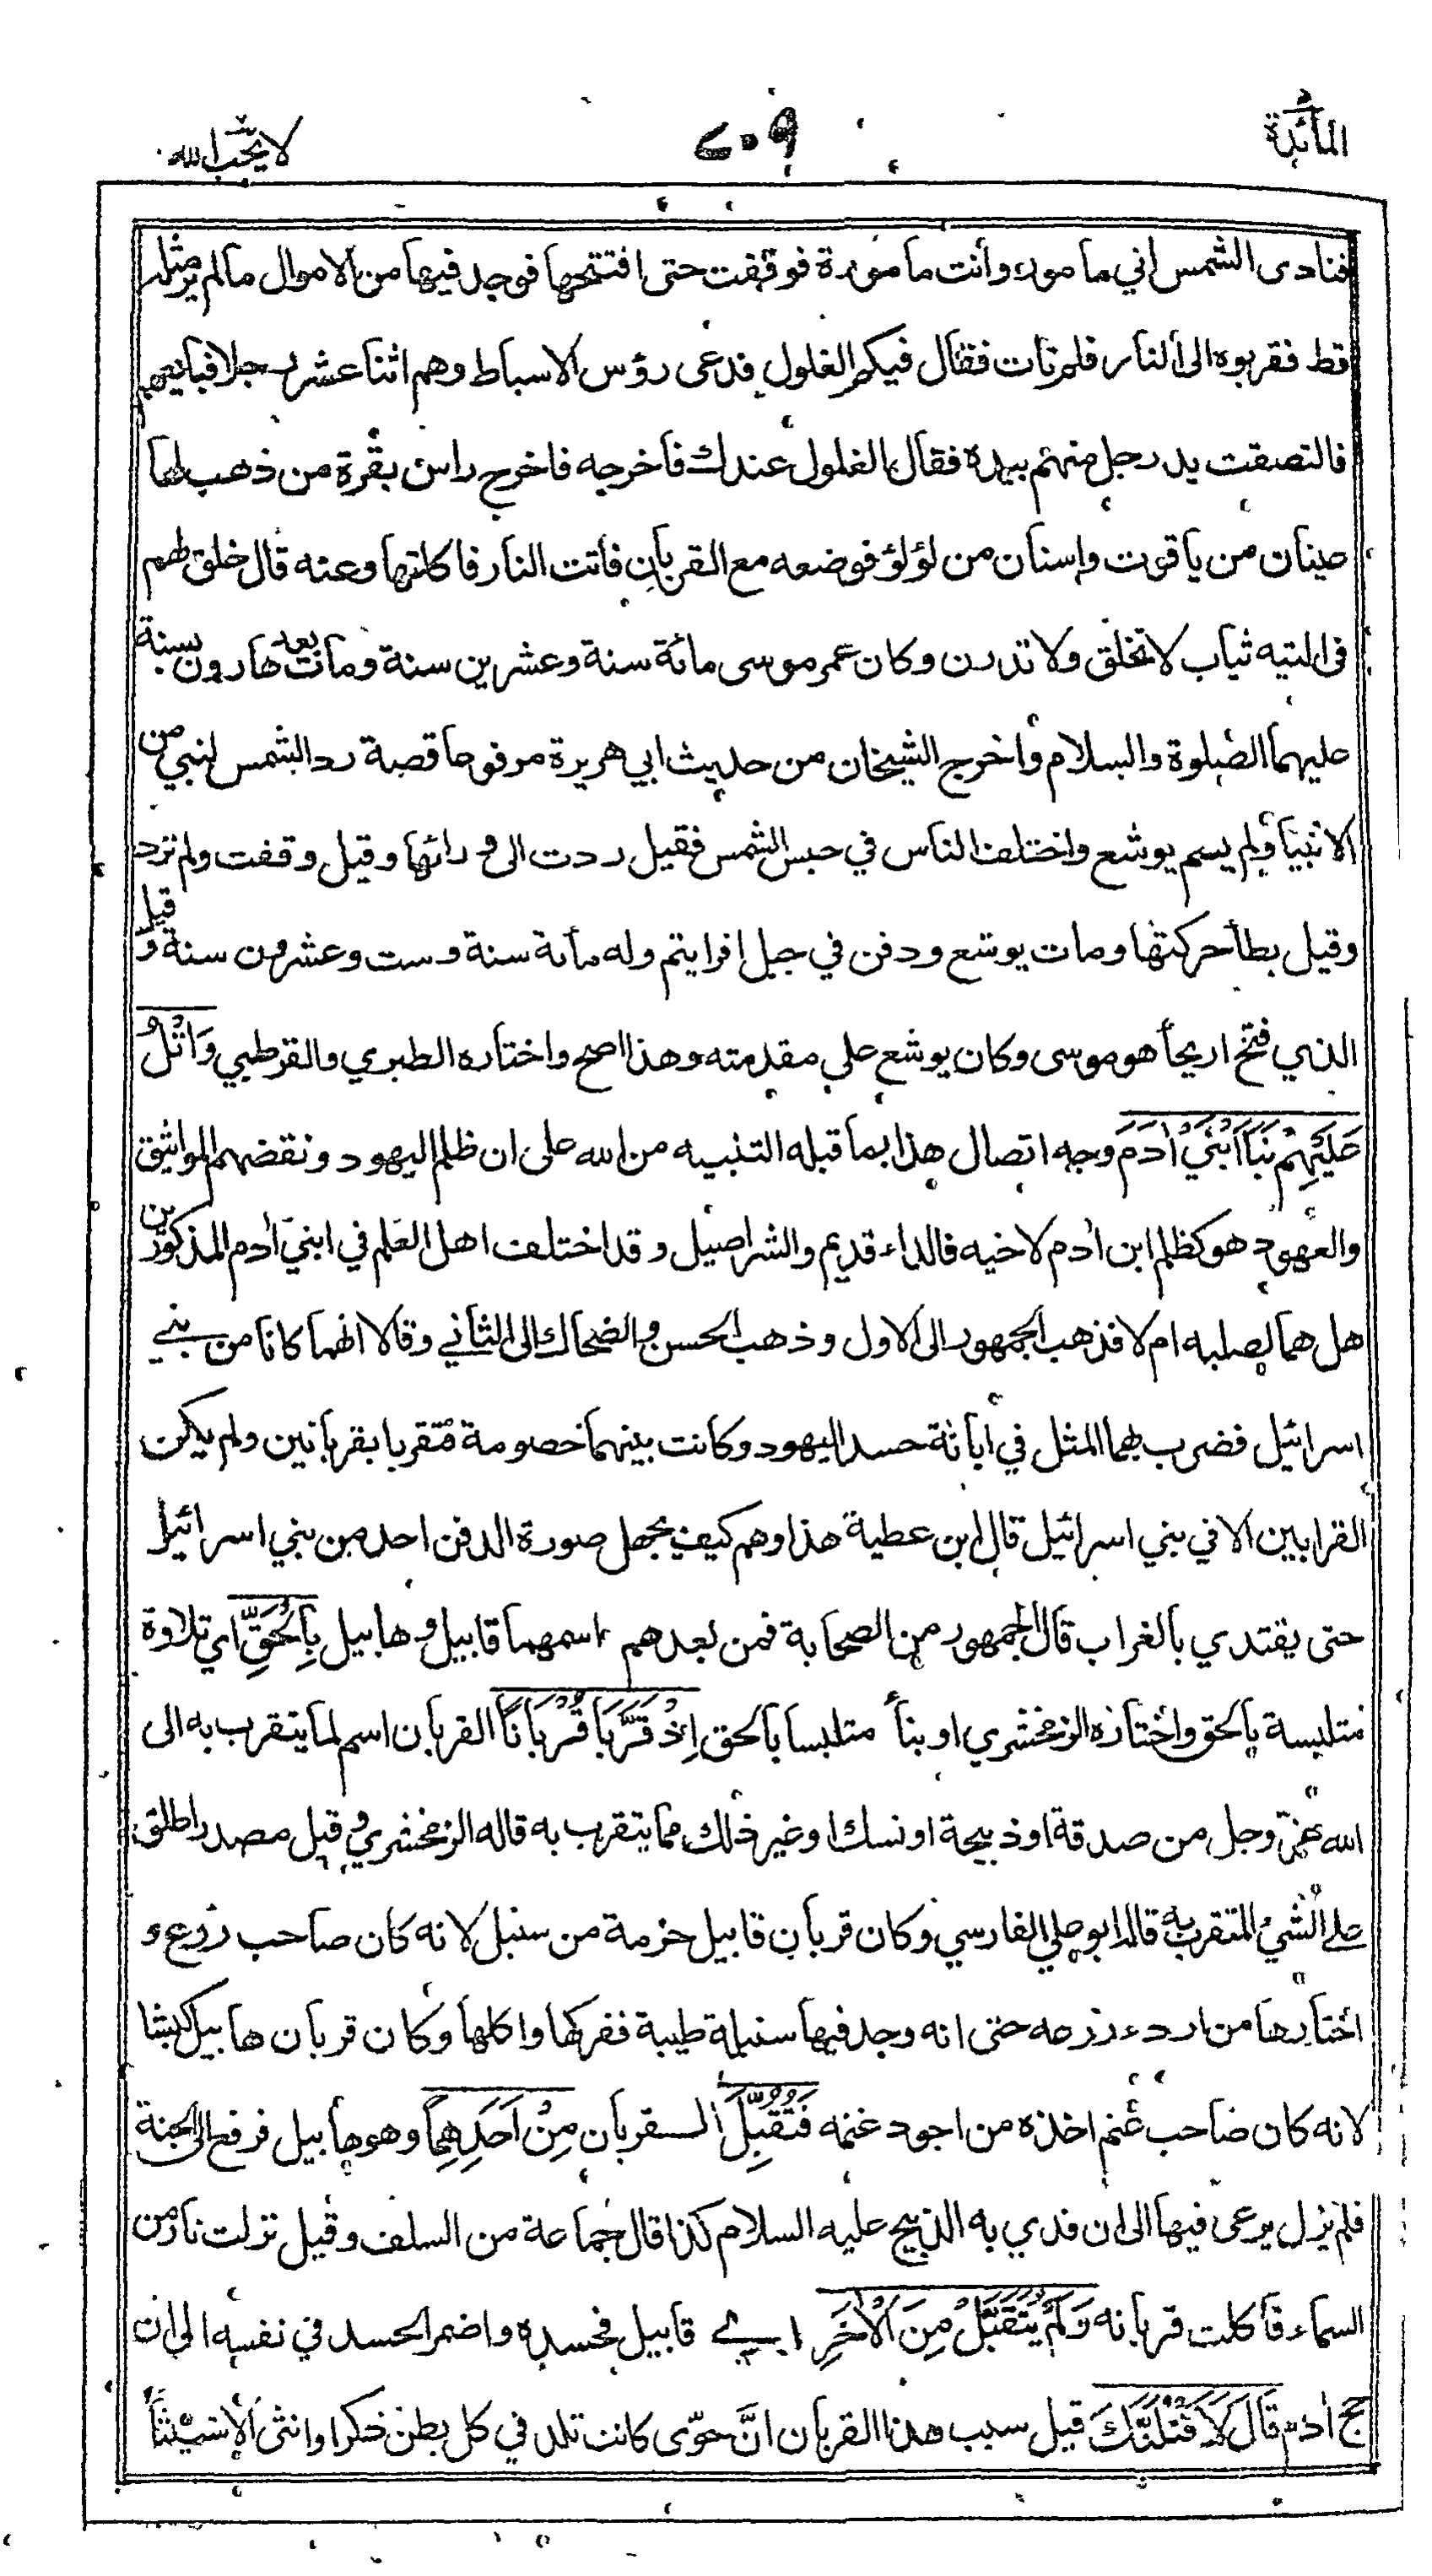 المائدة
٢٠٩
لا يحب الله
فنادى الشمس اني مامور وأنت مامورة فوقفت حتى افتتحها فوجد فيها من الاموال مالم ير مثله
قط فقربوه الى النار فلم تأت فقال فيكم الغلول فدعى رؤس الاسباط وهم اثنا عشر رجلا فبايعهم
فالتصقت يد رجل منهم بيده فقال الغلول عندك فأخرجه فاخرج راس بقرة من ذهب لها
عينان من ياقوت واسنان من لؤلؤ فوضعه مع القربان فأتت النار فاكلتها وعنه قال خلق لهم
فى التيه ثياب لا تخلق ولا تدرن وكان عمر موسى مائة سنة وعشرين سنة ومات بعد هارون بسنة
عليهما الصلوة والسلام وأخرج الشيخان من حديث ابي هريرة مرفوعا قصة رد الشمس لنبي من
الانبياء ولم يسم يوشع واختلف الناس في حبس الشمس فقيل ردت الى ورائها وقيل وقفت ولم ترد
وقيل بطأ حركتها ومات يوشع ودفن في جبل افرايتم وله مائة سنة وست وعشرون سنة وقيل
الذي فتح اريحا هو موسى وكان يوشع على مقدمته وهذا اصح واختاره الطبري والقرطبي وَاتْلُ
عَلَيْهِمْ نَبَأَ ابْنَيْ اٰدَمَ وجه اتصال هذا بما قبله التنبيه من الله على ان ظلم اليهود ونقضهم المواثيق
والعهود هو كظلم ابن اٰدم لاخيه فالداء قديم والشر اصيل وقد اختلف اهل العلم في ابني اٰدم المذكورين
هل هما لصلبه ام لا فذهب الجمهور الى الاول وذهب الحسن والضحاك الى الثاني وقالا انهما كانا من بني
اسرائيل فضرب بهما المثل في ابانة حسد اليهود وكانت بينهما خصومة فتقربا بقربانين ولم يكن
القرابين الا في بني اسرائيل قال ابن عطية هذا وهم كيف يجهل صورة الدفن احد من بني اسرائيل
حتى يقتدي بالغراب قال الجمهور من الصحابة فمن بعدهم اسمهما قابيل وهابيل بِالْحَقِّ اي تلاوة
متلبسة بالحق واختاره الزمخشري او نبأ متلبسا بالحق اِذْ قَرَّبَا قُرْبَانًا القربان اسم لما يتقرب به الى
الله عز وجل من صدقة او ذبيحة او نسك او غير ذلك مما يتقرب به قاله الزمخشري وقيل مصدر اطلق
على الشيء المتقرب به قاله ابو علي الفارسي وكان قربان قابيل حزمة من سنبل لانه كان صاحب زرع و
اختارها من اردء زرعه حتى انه وجد فيها سنبلة طيبة ففركها واكلها وكان قربان هابيل كبشا
لانه كان صاحب غنم اخذه من اجود غنمه فَتُقُبِّلَ القربان مِنْ اَحَدِهِمَا وهو هابيل فرفع الى الجنة
فلم يزل يرعى فيها الى ان فدي به الذبيح عليه السلام كذا قال جماعة من السلف وقيل نزلت نار من
السماء فأكلت قربانه وَلَمْ يُتَقَبَّلْ مِنَ الْاٰخَرِ اي قابيل فحسده واضمر الحسد في نفسه الى ان
حج اٰدم قَالَ لَاَقْتُلَنَّكَ قيل سبب هذا القربان انَّ حوّى كانت تلد في كل بطن ذكرا وانثى الا شيثا